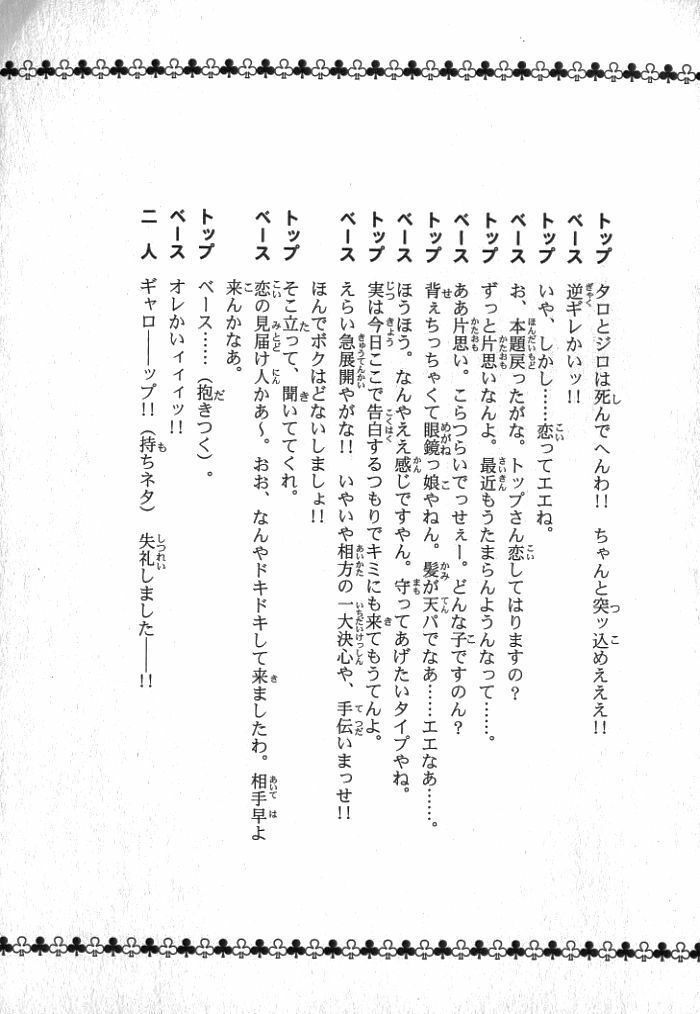 トップ タロとジロは死んでへんわ!! ちゃんと突ッ込めえええ!!
ベース 逆ギレかいッ!!
トップ いや、しかし……恋ってエエね。
ベース お、本題戻ったがな。トップさん恋してはりますの?
トップ ずっと片思いなんよ。最近もうたまらんようんなって……。
ベース ああ片思い。こらつらいでっせぇー。どんな子ですのん?
トップ 背ぇちっちゃくて眼鏡っ娘やねん。髪が天パでなあ……エエなあ……。
ベース ほうほう。なんやええ感じですやん。守ってあげたいタイプやね。
トップ 実は今日ここで告白するつもりでキミにも来てもうてんよ。
ベース えらい急展開やがな!! いやいや相方の一大決心や、手伝いまっせ!!
ほんでボクはどないしましょ!!
トップ そこ立って、聞いててくれ。
ベース 恋の見届け人かあ~。おお、なんやドキドキして来ましたわ。相手早よ
来んかなあ。
トップ ベース……(抱きつく)。
ベース オレかいィィィッ!!
二人 ギャロ――ップ!!(持ちネタ) 失礼しました――!!